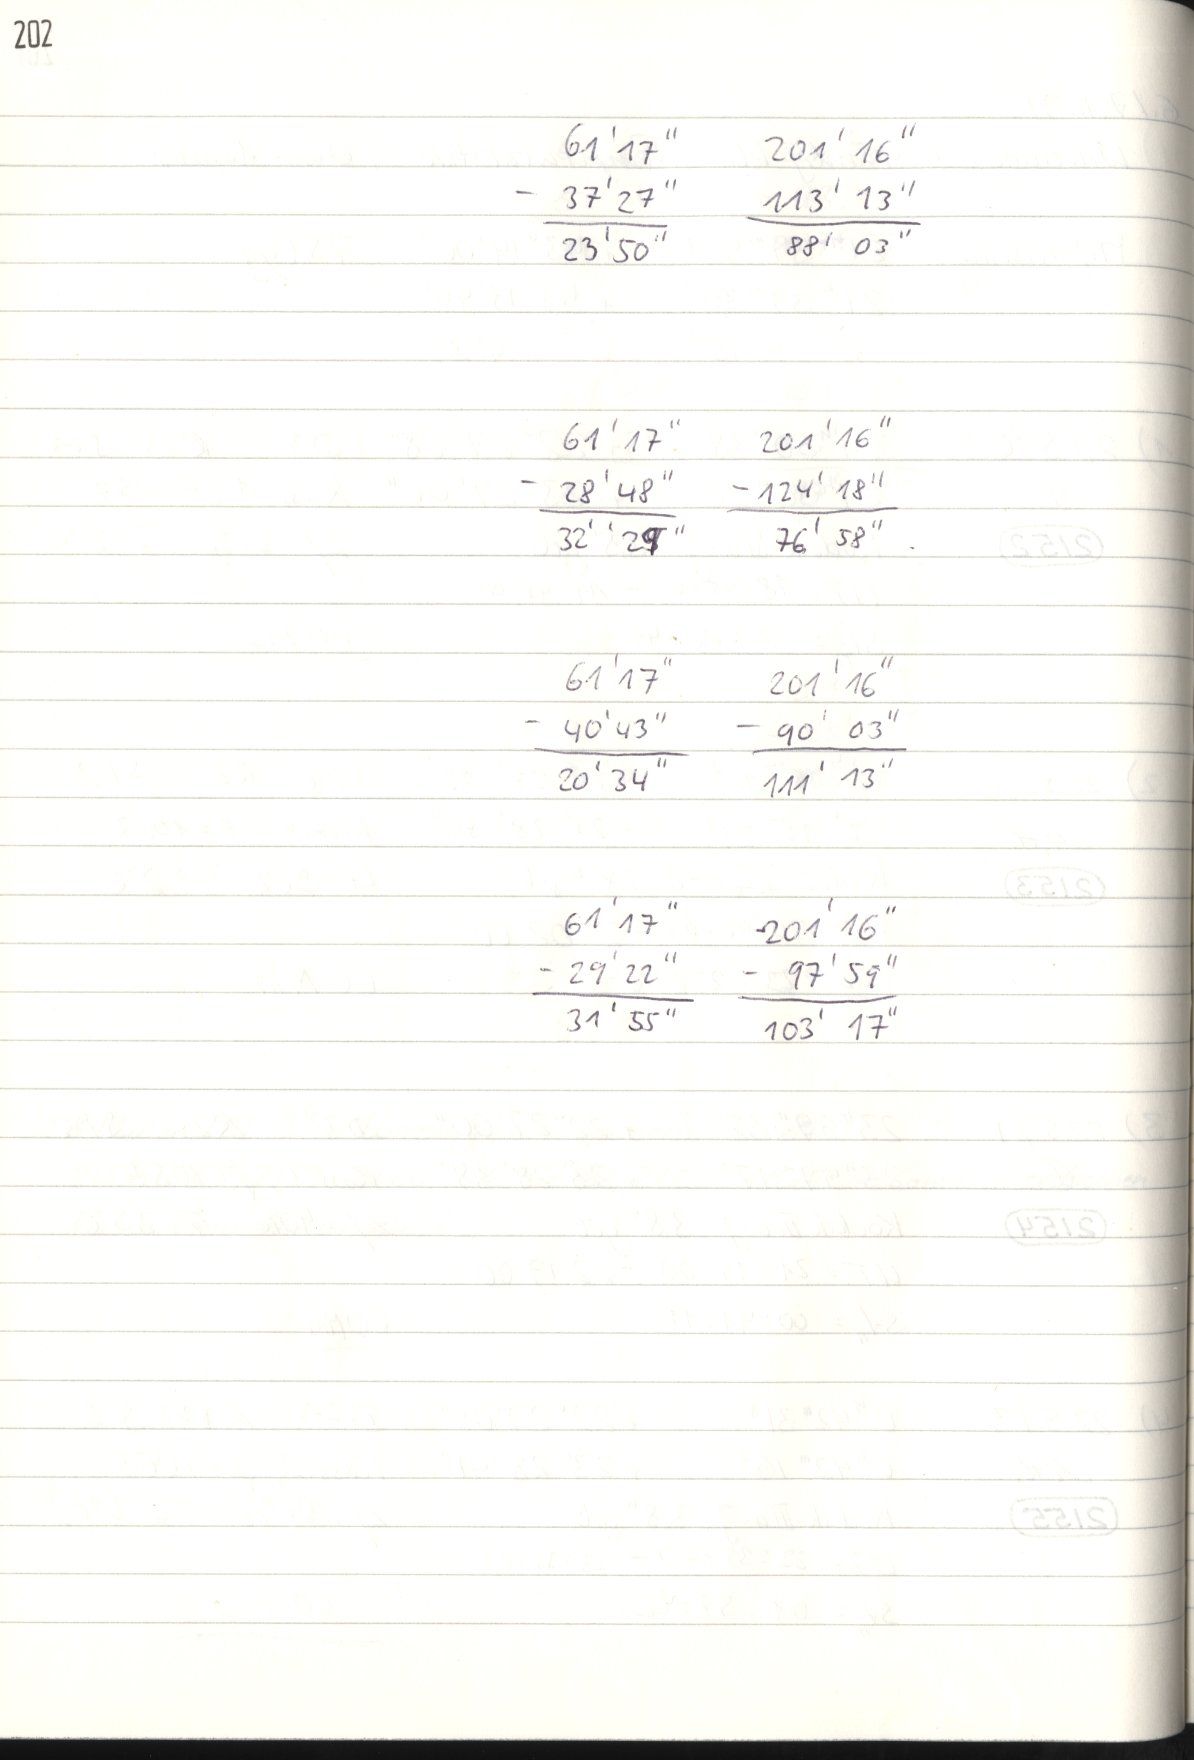 202
61'17" 201' 16"
- 37'27" 113' 13"
23'50" 88' 03"
61'17" 201'16"
- 28'48" - 124' 18"
32' 29" 76' 58"
61'17" 201'16"
- 40'43" - 90' 03"
20'34" 111' 13"
61'17" 201'16"
- 29'22" - 97'59"
31' 55" 103' 17"